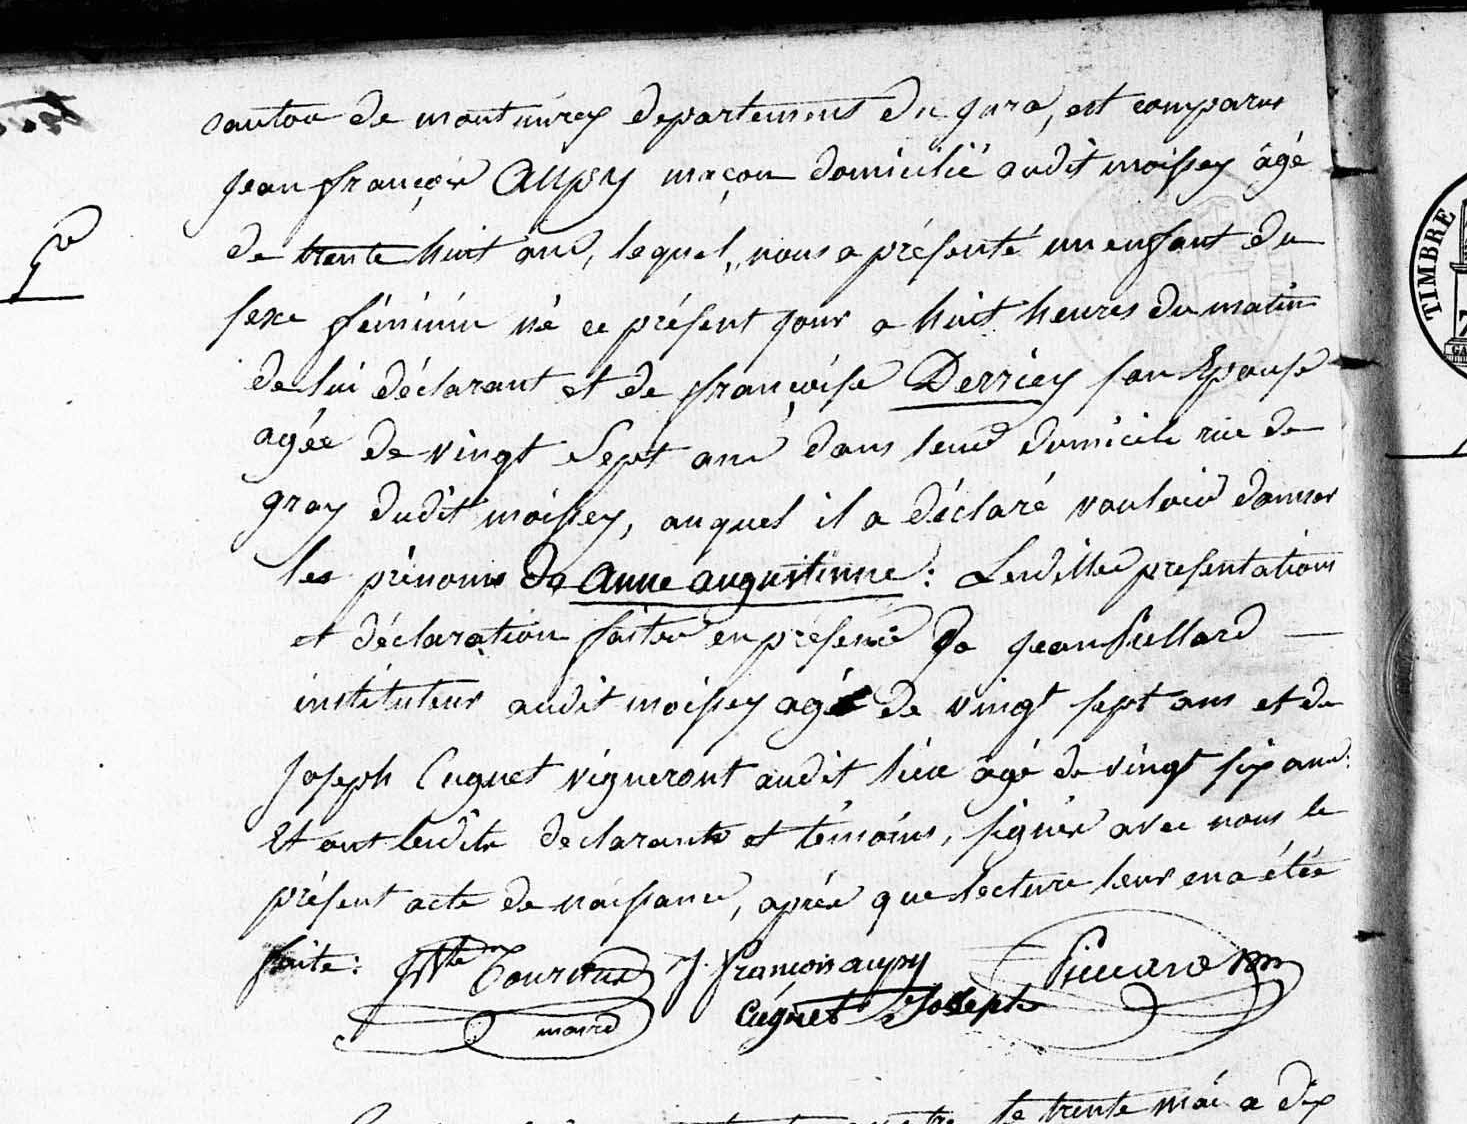 canton de montmirey departement du jura, est comparu
jean françois Aupsy maçon domicilié audit moissey âgé
de trente huit ans, lequel, nous a présenté un enfant du
sexe féminin né ce présent jour a huit heures du matin
de lui déclarant et de françoise Derriey son Epouse
agée de vingt Sept ans dans leur domicile rue de
gray dudit moissey, auquel il a déclaré vouloir donner
les prénoms de anne augustinne : Lesdittes presentations
et déclaration faites en présence de jean
instituteur audit moissey agé de vingt sept ans et de
joseph Cugnet vigneront audit lieu agé de vingt six ans.
Et ont lesdits declarants et témoins, signés avec nous le
présent acte de naissance, après que lecture leur en a étée
faite : J. françois aupsy
maire Cugnet Joseph
le trente mai a dix
TIMBRE